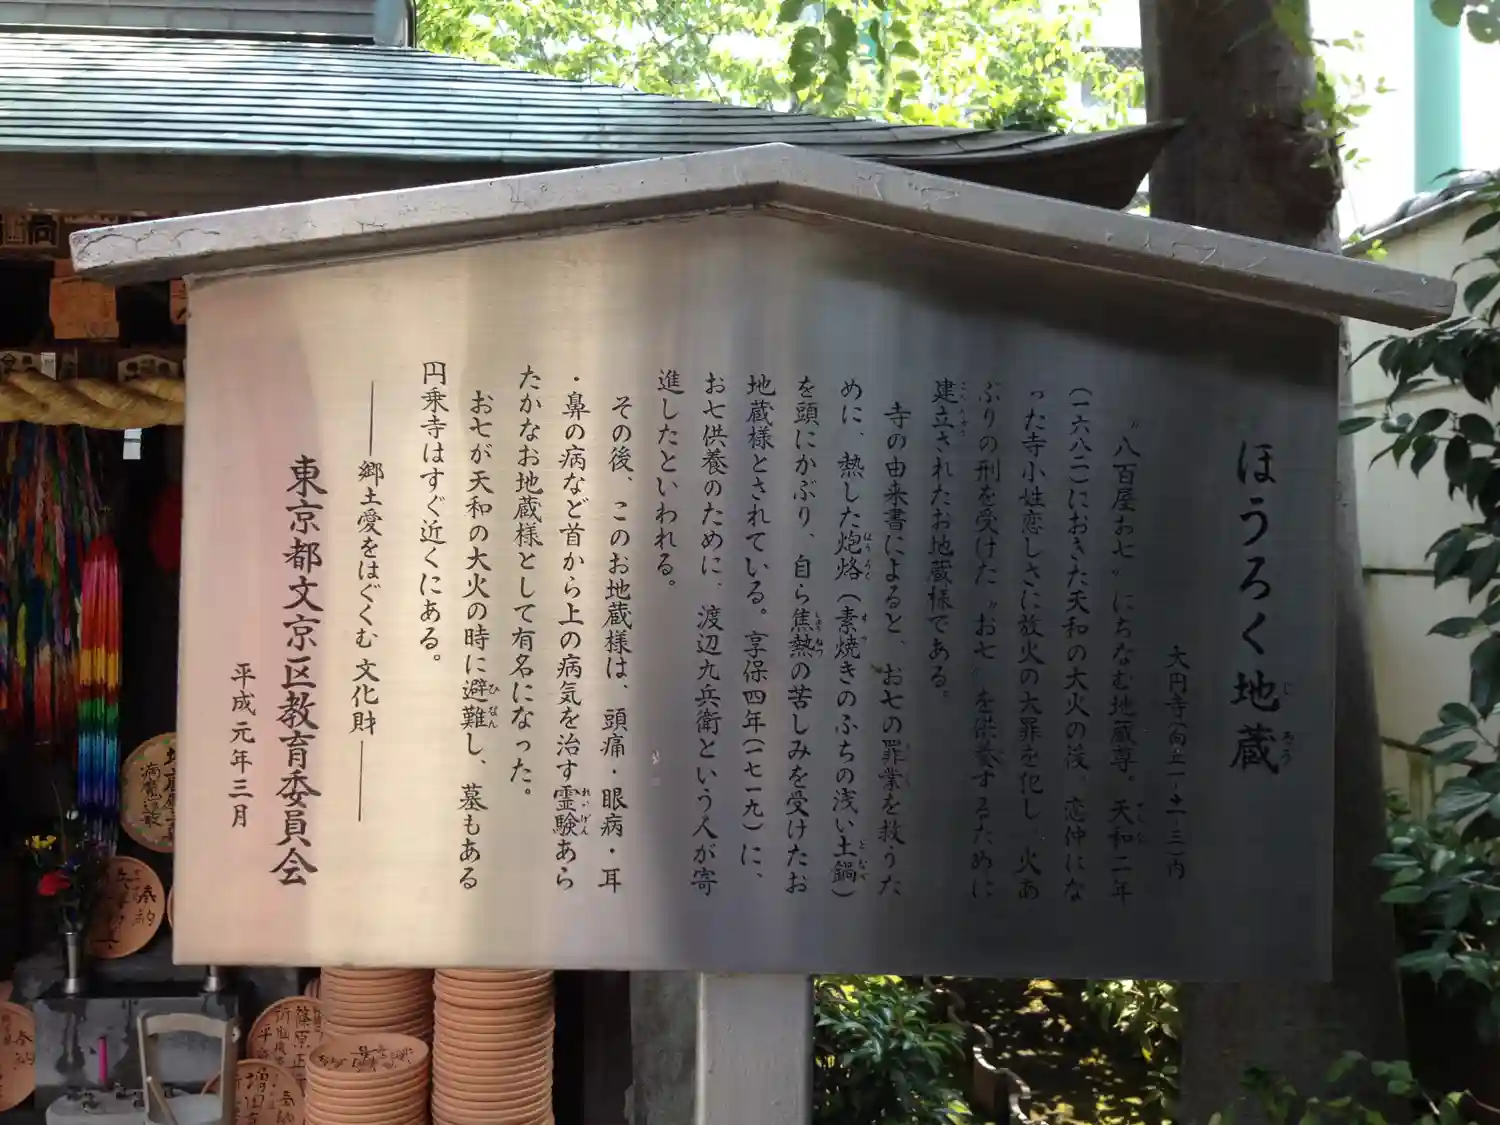 ほうろく地蔵
大円寺(向丘一-十一-三)内
"八百屋お七"にちなむ地蔵尊。天和二年
(一六八二)におきた天和の大火の後、恋仲にな
った寺小姓恋しさに放火の大罪を犯し、火あ
ぶりの刑を受けた"お七"を供養するために
建立されたお地蔵様である。
寺の由来書によると、お七の罪業を救うた
めに、熱した炮烙(素焼きのふちの浅い土鍋)
を頭にかぶり、自ら焦熱の苦しみを受けたお
地蔵様とされている。享保四年(一七一九)に、
お七供養のために、渡辺九兵衛という人が寄
進したといわれる。
その後、このお地蔵様は、頭痛・眼病・耳
・鼻の病など首から上の病気を治す霊験あら
たかなお地蔵様として有名になった。
お七が天和の大火の時に避難し、墓もある
円乗寺はすぐ近くにある。
――郷土愛をはぐくむ 文化財――
東京都文京区教育委員会
平成元年三月